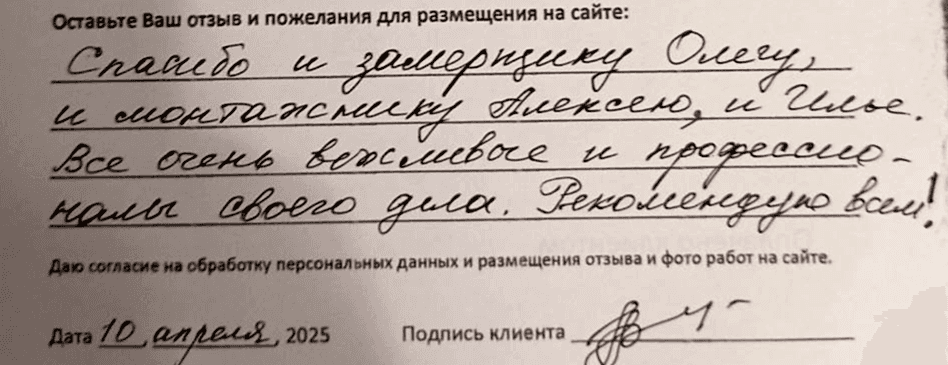 Оставьте Ваш отзыв и пожелания для размещения на сайте:
Спасибо и замерщику Олегу,
и монтажнику Алексею, и Илье.
Все очень вежливые и профессио-
налы своего дела. Рекомендую всем!
Даю согласие на обработку персональных данных и размещения отзыва и фото работ на сайте.
Дата 10, апреля, 2025 Подпись клиента